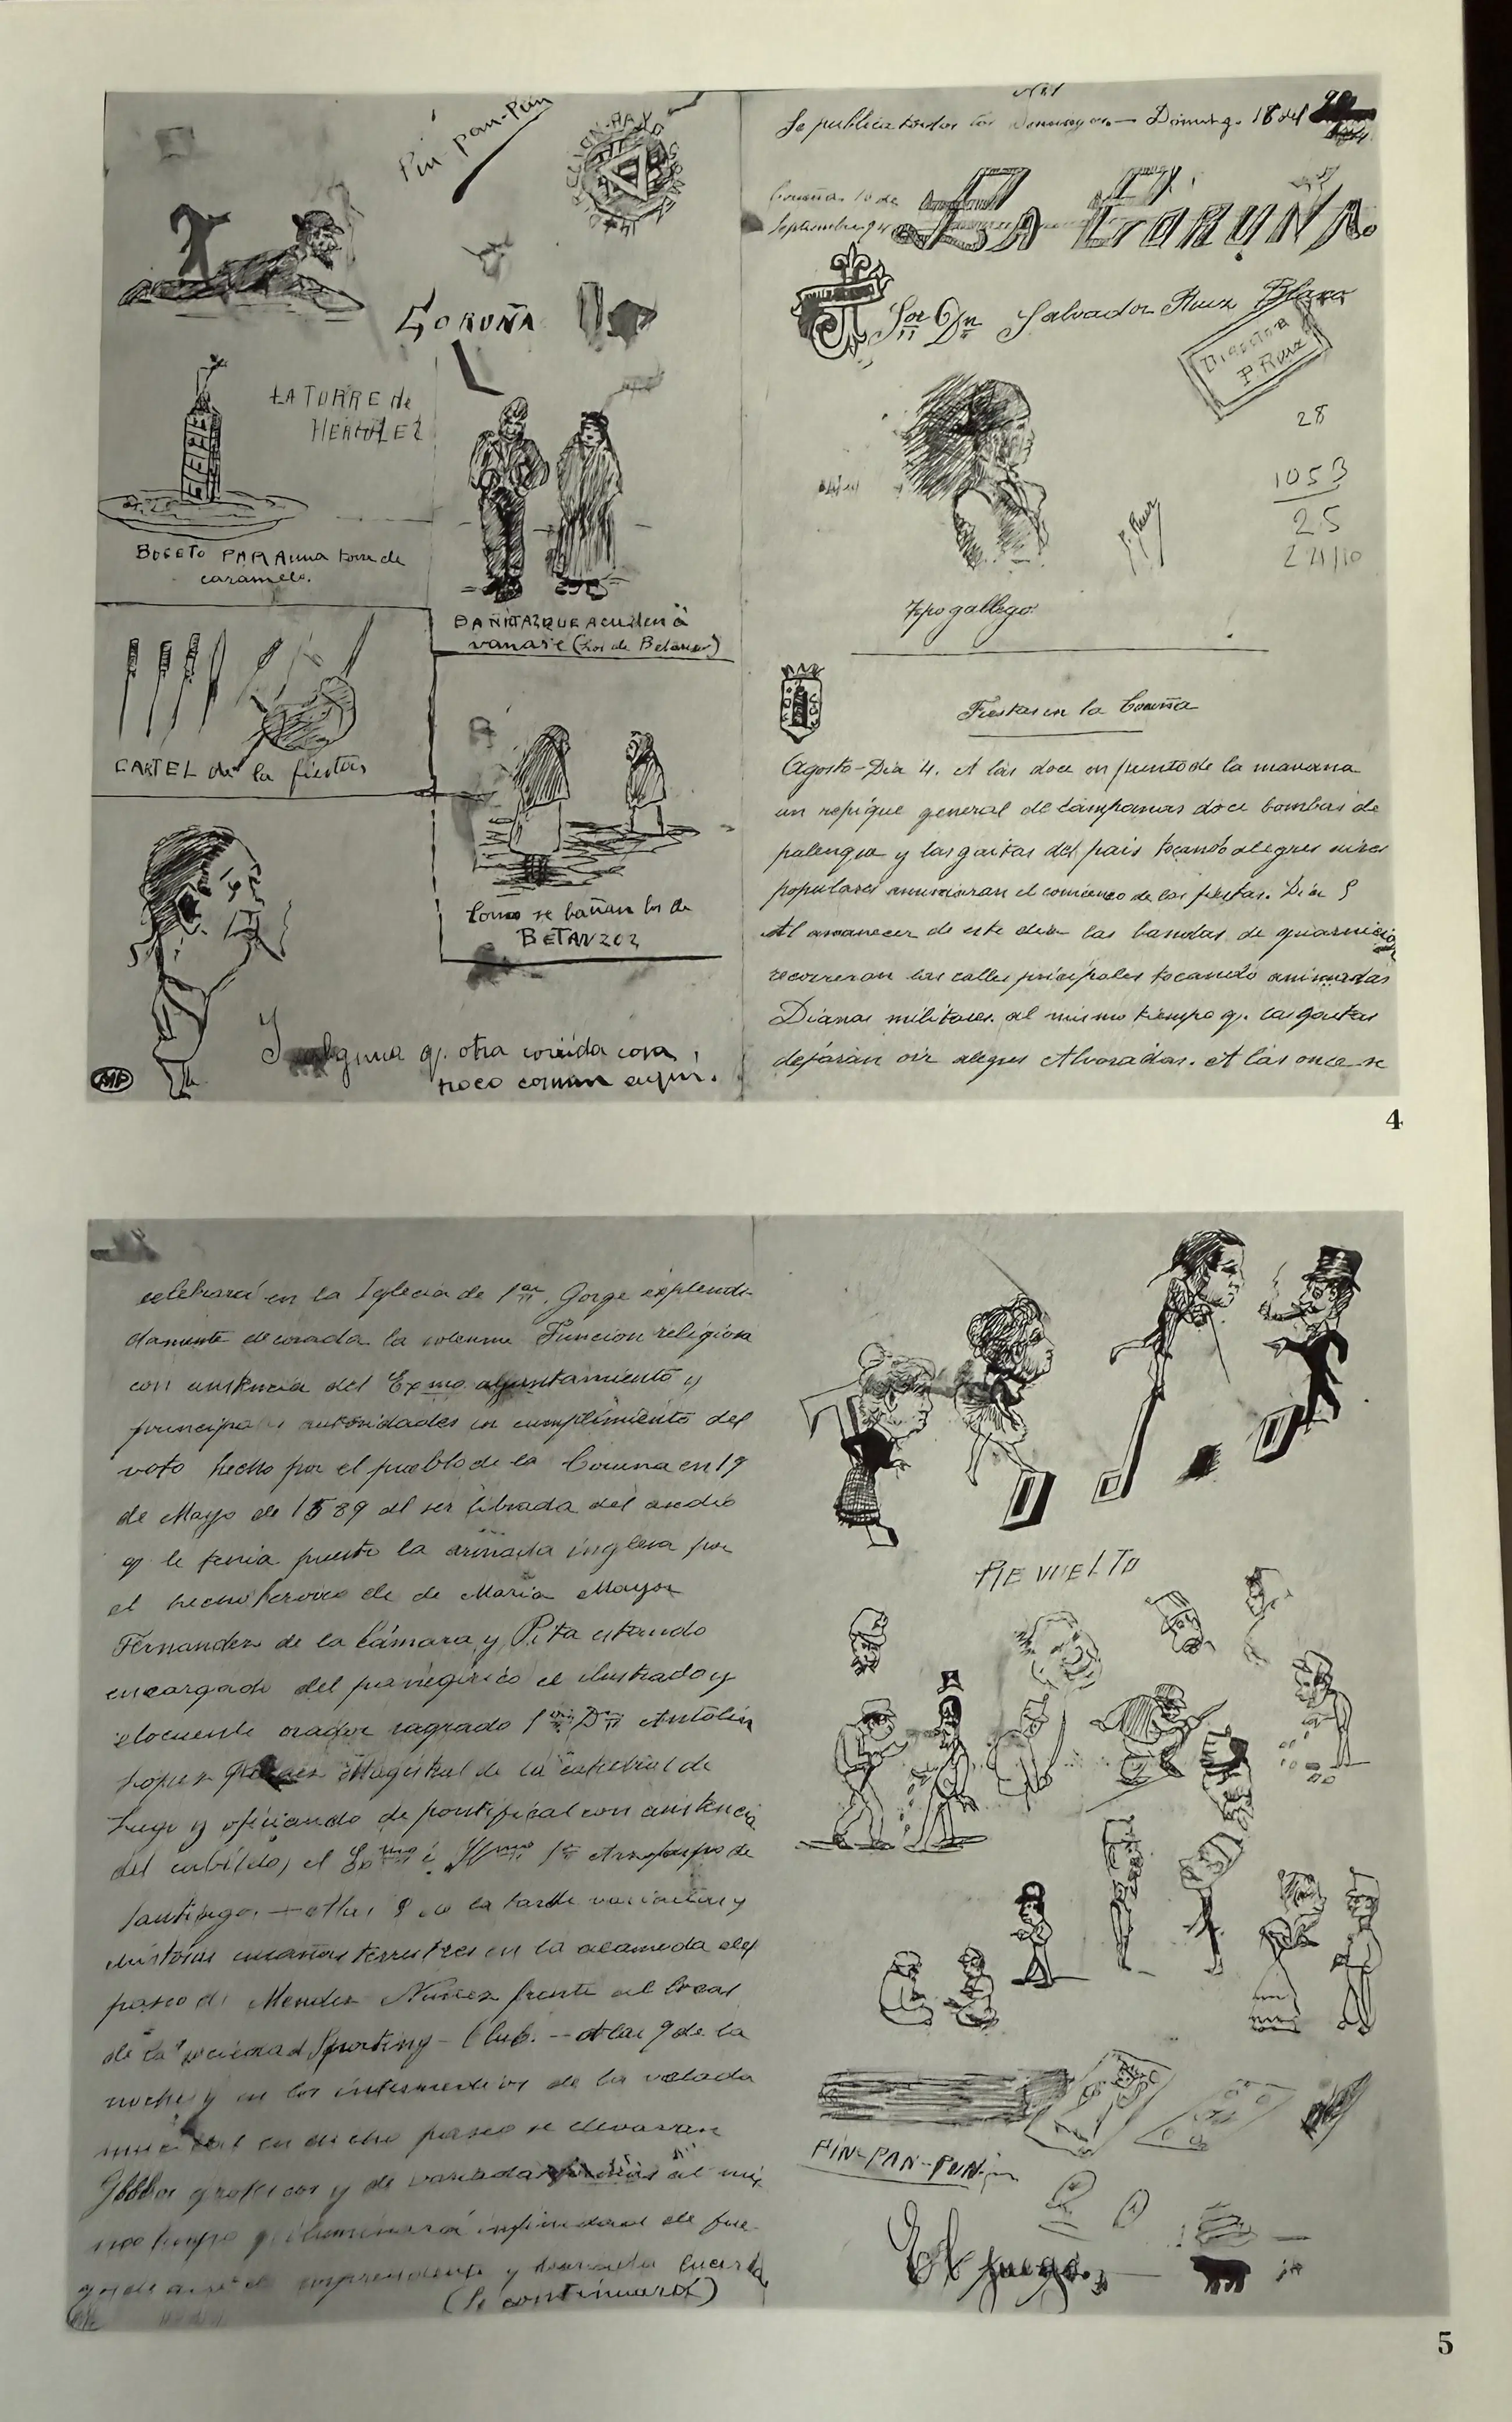 Pin-pan-Pun
CORUÑA
LA TORRE de
HERCULEZ
BOCETO PARA una torre de
caramelo.
BAÑITAZ QUE acuden á
vanase (Los de Betanzos)
CARTEL de la fiestas
Como se bañan los de
BETANZOZ
Y alguna q. otra corrida cosa,
poco comun aqui.
MP
Nº 1
Se publica todos los Domingos.— Doming. 16 del
Coruña 16 de
Septiembre 94
LA CORUÑA.
Sor Dn Salvador Ruiz Blasco
Director
P. Ruiz
28
1053
25
P. Ruiz
Tipo gallego.
Fiestas en la Coruña
Agosto-Dia 4. A las doce en punto de la manana
un repique general de campanas doce bombas de
palenque y las gaitas del pais tocando alegres aires
populares anunciaran el comienzo de las fiestas. Dia 5
Al amanecer de este dia las bandas de guarnicion
recorreran las calles pricipales tocando animadas
Dianas militares al mismo tiempo q. las gaitas
dejarán oir alegres Alvoradas. A las once se
4
celebrará en la Iglecia de San. Jorge esplendi-
damente decorada la solenne Funcion religiosa
con asistencia del Exmo. alyuntamiento y
principales autoridades en cumplimiento del
voto hecho por el pueblo de la Coruna en 19
de Mayo de 1589 al ser librada del asedio
q le tenia puesto la armada inglesa por
el hecho heroico de de Maria Mayor
Fernandez de la Cámara y Pita estando
encargado del panegirico el ilustrado y
elocuente orador sagrado Sor Dn Antolin
Lopez Magistral de la catedral de
Lugo y oficiando de pontifical con asistencia
del cabildo, el Exmo é Ylmo Sr Arzopispo de
Santiago. — A las 8 de la tarde variadas y
cucañas terrestres en la alameda del
paseo de Mendez Nuñez frente al local
de la sociedad Sporting-Club. — A las 9 de la
noche y en los intermedios de la velada
musical en dicho paseo se elevaran
Globos grotescos y de variadas al mis
mo tiempo q iluminará infinidad de fue-
gos de aire de sorprendente y
(Se continuará)
REVUELTO
PIN-PAN-PUN.
El juego.
5